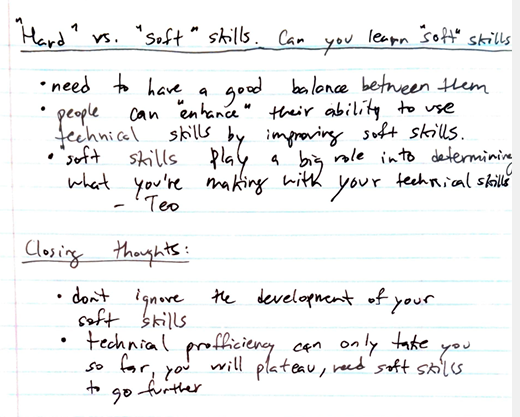 "Hard" vs. "Soft" skills. Can you learn "soft" skills
• need to have a good balance between them
• people can "enhance" their ability to use
technical skills by improving soft skills.
• soft skills play a big role into determining
what you're making with your technical skills
- Teo
Closing thoughts:
• don't ignore the development of your
soft skills
• technical profficiency can only take you
so far, you will plateau, need soft skills
to go further